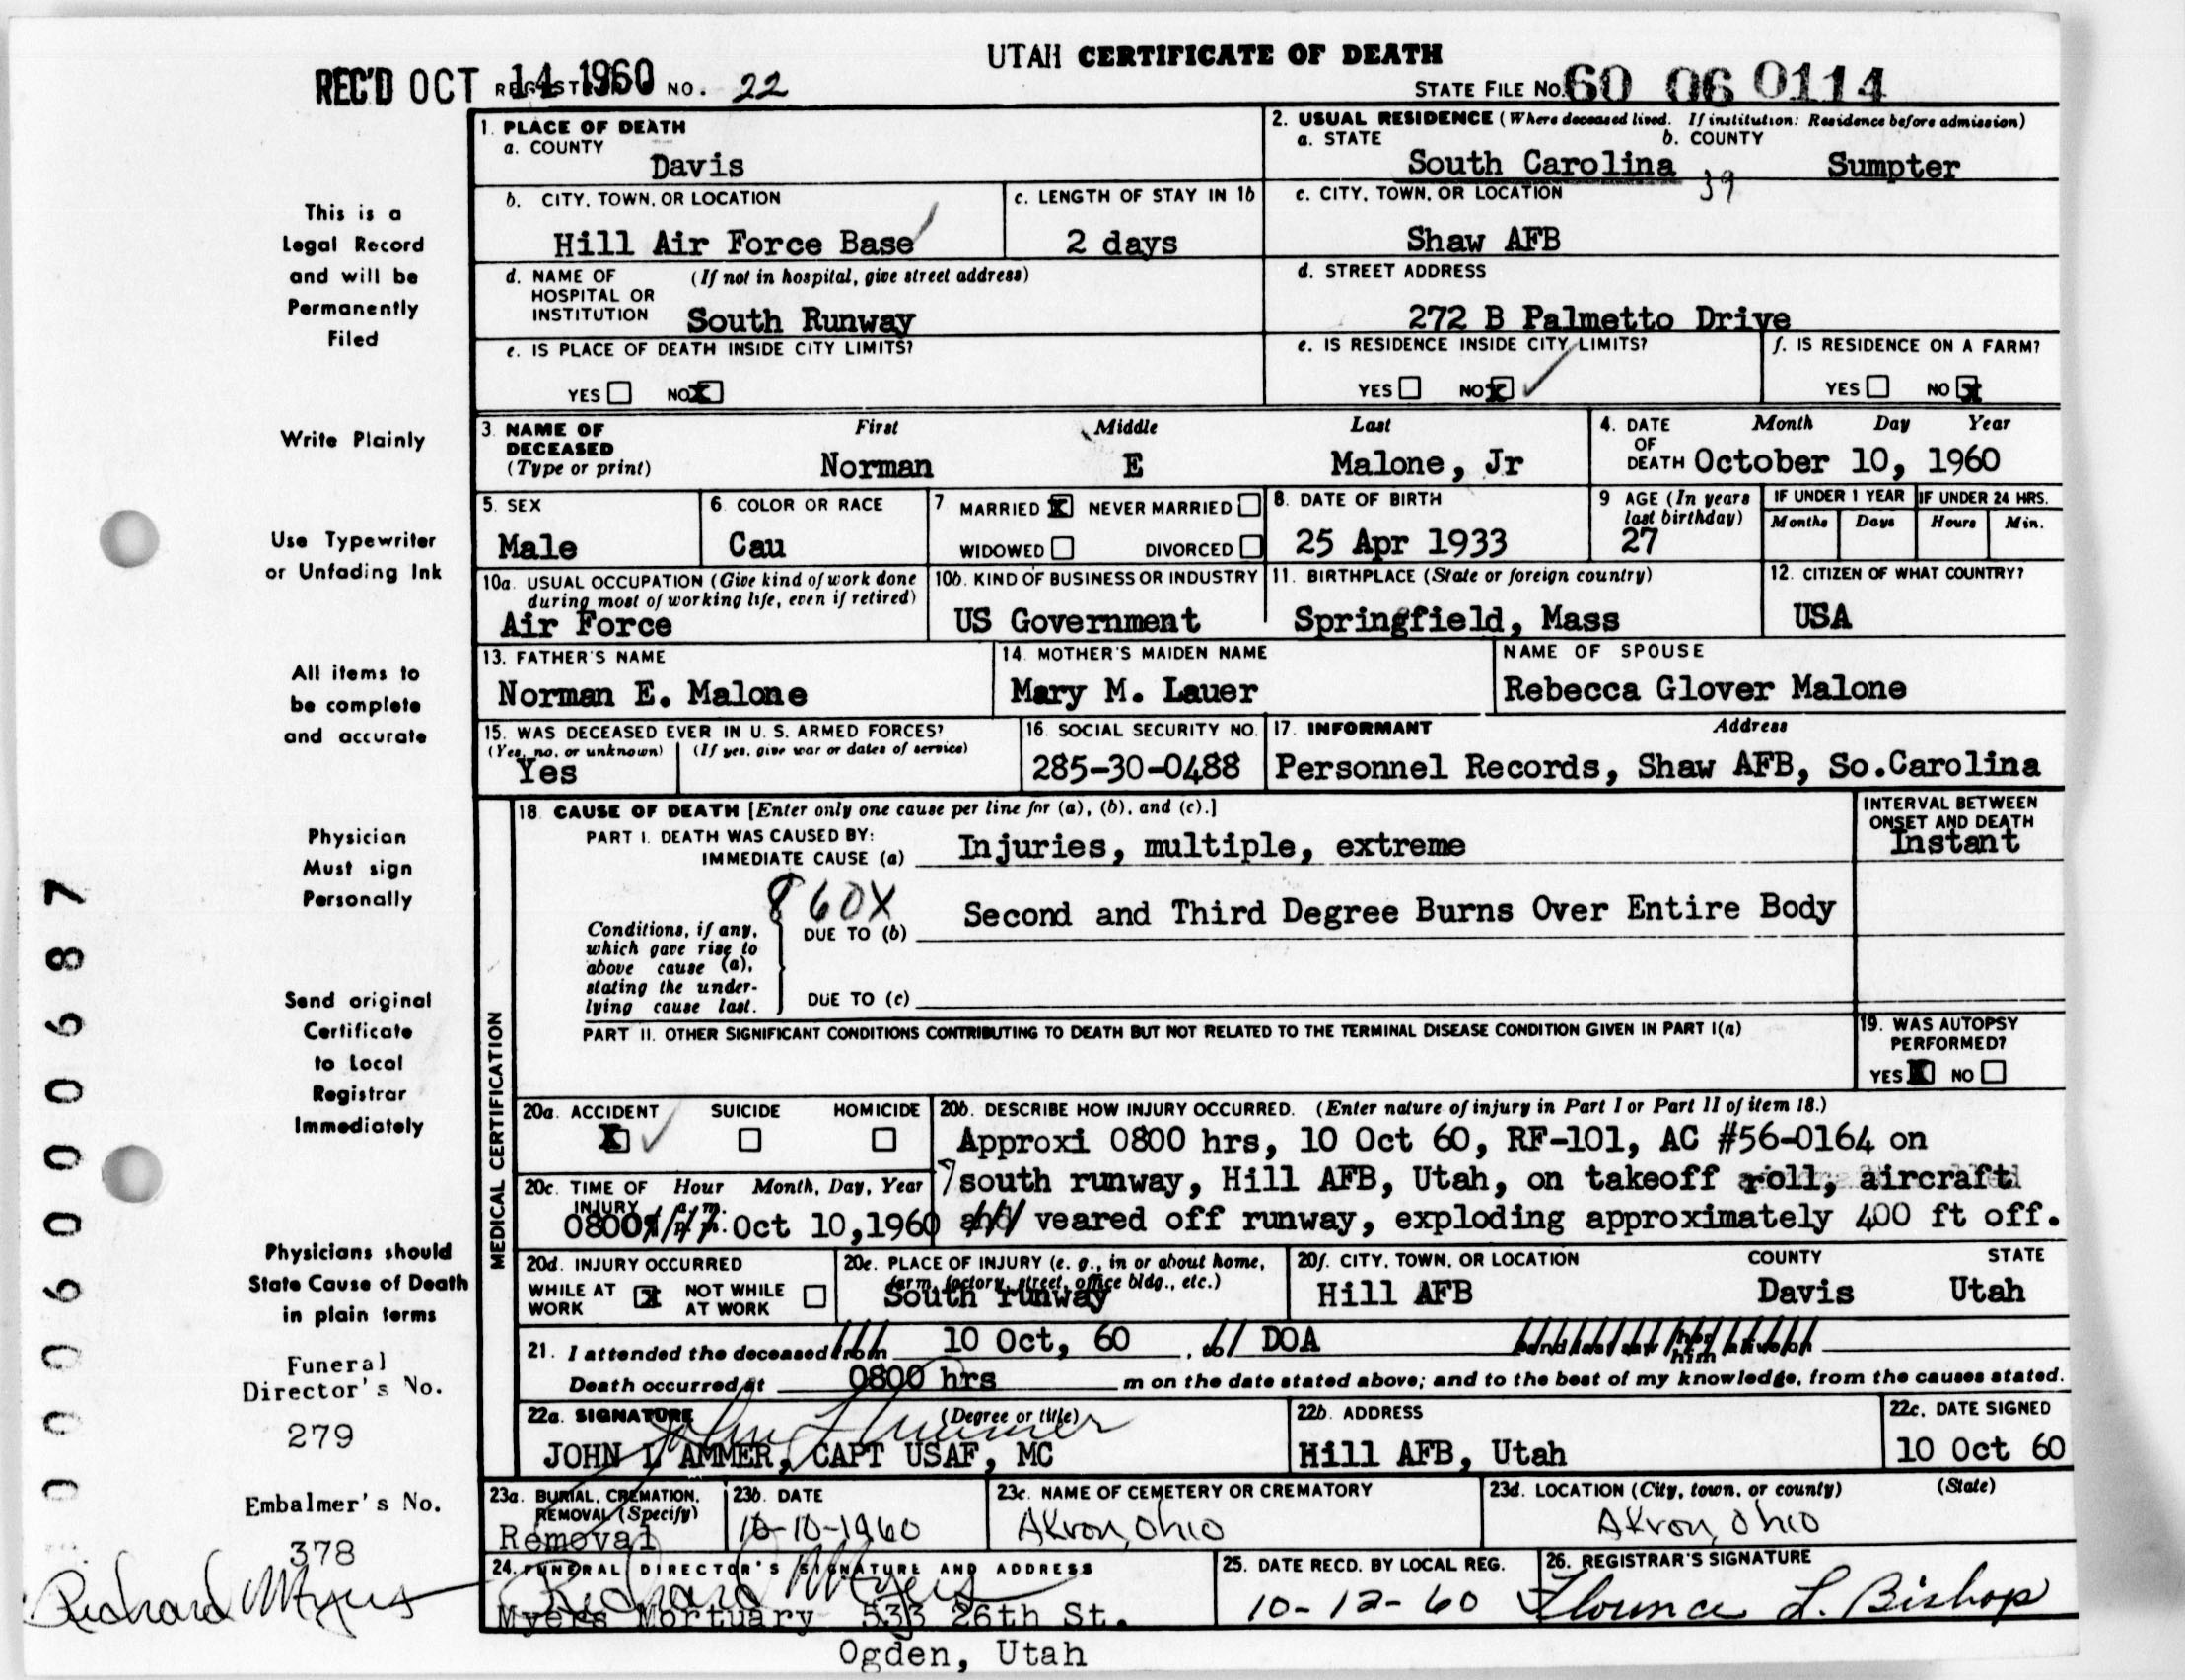 UTAH CERTIFICATE OF DEATH
REC'D OCT 14 1960 NO. 22
STATE FILE No. 60 06 0114
1. PLACE OF DEATH
a. COUNTY
Davis
2. USUAL RESIDENCE (Where deceased lived. If institution: Residence before admission)
a. STATE b. COUNTY
South Carolina 39 Sumpter
b. CITY, TOWN, OR LOCATION
Hill Air Force Base
c. LENGTH OF STAY IN 1b
2 days
c. CITY, TOWN, OR LOCATION
Shaw AFB
d. NAME OF HOSPITAL OR INSTITUTION (If not in hospital, give street address)
South Runway
d. STREET ADDRESS
272 B Palmetto Drive
e. IS PLACE OF DEATH INSIDE CITY LIMITS?
YES NO X
e. IS RESIDENCE INSIDE CITY LIMITS?
YES NO X
f. IS RESIDENCE ON A FARM?
YES NO X
3. NAME OF DECEASED (Type or print)
First Middle Last
Norman E Malone, Jr
4. DATE OF DEATH Month Day Year
October 10, 1960
5. SEX
Male
6. COLOR OR RACE
Cau
7 MARRIED X NEVER MARRIED
WIDOWED DIVORCED
8. DATE OF BIRTH
25 Apr 1933
9 AGE (In years last birthday)
27
IF UNDER 1 YEAR
Months Days
IF UNDER 24 HRS.
Hours Min.
10a. USUAL OCCUPATION (Give kind of work done during most of working life, even if retired)
Air Force
10b. KIND OF BUSINESS OR INDUSTRY
US Government
11. BIRTHPLACE (State or foreign country)
Springfield, Mass
12. CITIZEN OF WHAT COUNTRY?
USA
13. FATHER'S NAME
Norman E. Malone
14. MOTHER'S MAIDEN NAME
Mary M. Lauer
NAME OF SPOUSE
Rebecca Glover Malone
15. WAS DECEASED EVER IN U. S. ARMED FORCES?
(Yes, no, or unknown) (If yes, give war or dates of service)
Yes
16. SOCIAL SECURITY NO.
285-30-0488
17. INFORMANT Address
Personnel Records, Shaw AFB, So.Carolina
MEDICAL CERTIFICATION
18. CAUSE OF DEATH [Enter only one cause per line for (a), (b), and (c).]
PART I. DEATH WAS CAUSED BY:
IMMEDIATE CAUSE (a) Injuries, multiple, extreme
INTERVAL BETWEEN ONSET AND DEATH
Instant
860X
Conditions, if any, which gave rise to above cause (a), stating the underlying cause last.
DUE TO (b) Second and Third Degree Burns Over Entire Body
DUE TO (c)
PART II. OTHER SIGNIFICANT CONDITIONS CONTRIBUTING TO DEATH BUT NOT RELATED TO THE TERMINAL DISEASE CONDITION GIVEN IN PART I(a)
19. WAS AUTOPSY PERFORMED?
YES X NO
20a. ACCIDENT SUICIDE HOMICIDE
X
20b. DESCRIBE HOW INJURY OCCURRED. (Enter nature of injury in Part I or Part II of item 18.)
Approxi 0800 hrs, 10 Oct 60, RF-101, AC #56-0164 on
south runway, Hill AFB, Utah, on takeoff roll, aircraft
and veared off runway, exploding approximately 400 ft off.
20c. TIME OF INJURY Hour Month, Day, Year
0800 a. m. p. Oct 10,1960
20d. INJURY OCCURRED
WHILE AT WORK X NOT WHILE AT WORK
20e. PLACE OF INJURY (e. g., in or about home, farm, factory, street, office bldg., etc.)
South runway
20f. CITY, TOWN, OR LOCATION COUNTY STATE
Hill AFB Davis Utah
21. I attended the deceased from 10 Oct, 60, to DOA and last saw her him alive on
Death occurred at 0800 hrs m on the date stated above; and to the best of my knowledge, from the causes stated.
22a. SIGNATURE (Degree or title)
JOHN L AMMER, CAPT USAF, MC
22b. ADDRESS
Hill AFB, Utah
22c. DATE SIGNED
10 Oct 60
23a. BURIAL, CREMATION, REMOVAL (Specify)
Removal
23b. DATE
10-10-1960
23c. NAME OF CEMETERY OR CREMATORY
Akron, Ohio
23d. LOCATION (City, town, or county) (State)
Akron, Ohio
24. FUNERAL DIRECTOR'S SIGNATURE AND ADDRESS
Richard Myers
Myers Mortuary 533 26th St.
Ogden, Utah
25. DATE RECD. BY LOCAL REG.
10-12-60
26. REGISTRAR'S SIGNATURE
Florence L. Bishop
This is a
Legal Record
and will be
Permanently
Filed
Write Plainly
Use Typewriter
or Unfading Ink
All items to
be complete
and accurate
Physician
Must sign
Personally
Send original
Certificate
to Local
Registrar
Immediately
Physicians should
State Cause of Death
in plain terms
Funeral
Director's No.
279
Embalmer's No.
378
Richard Myers